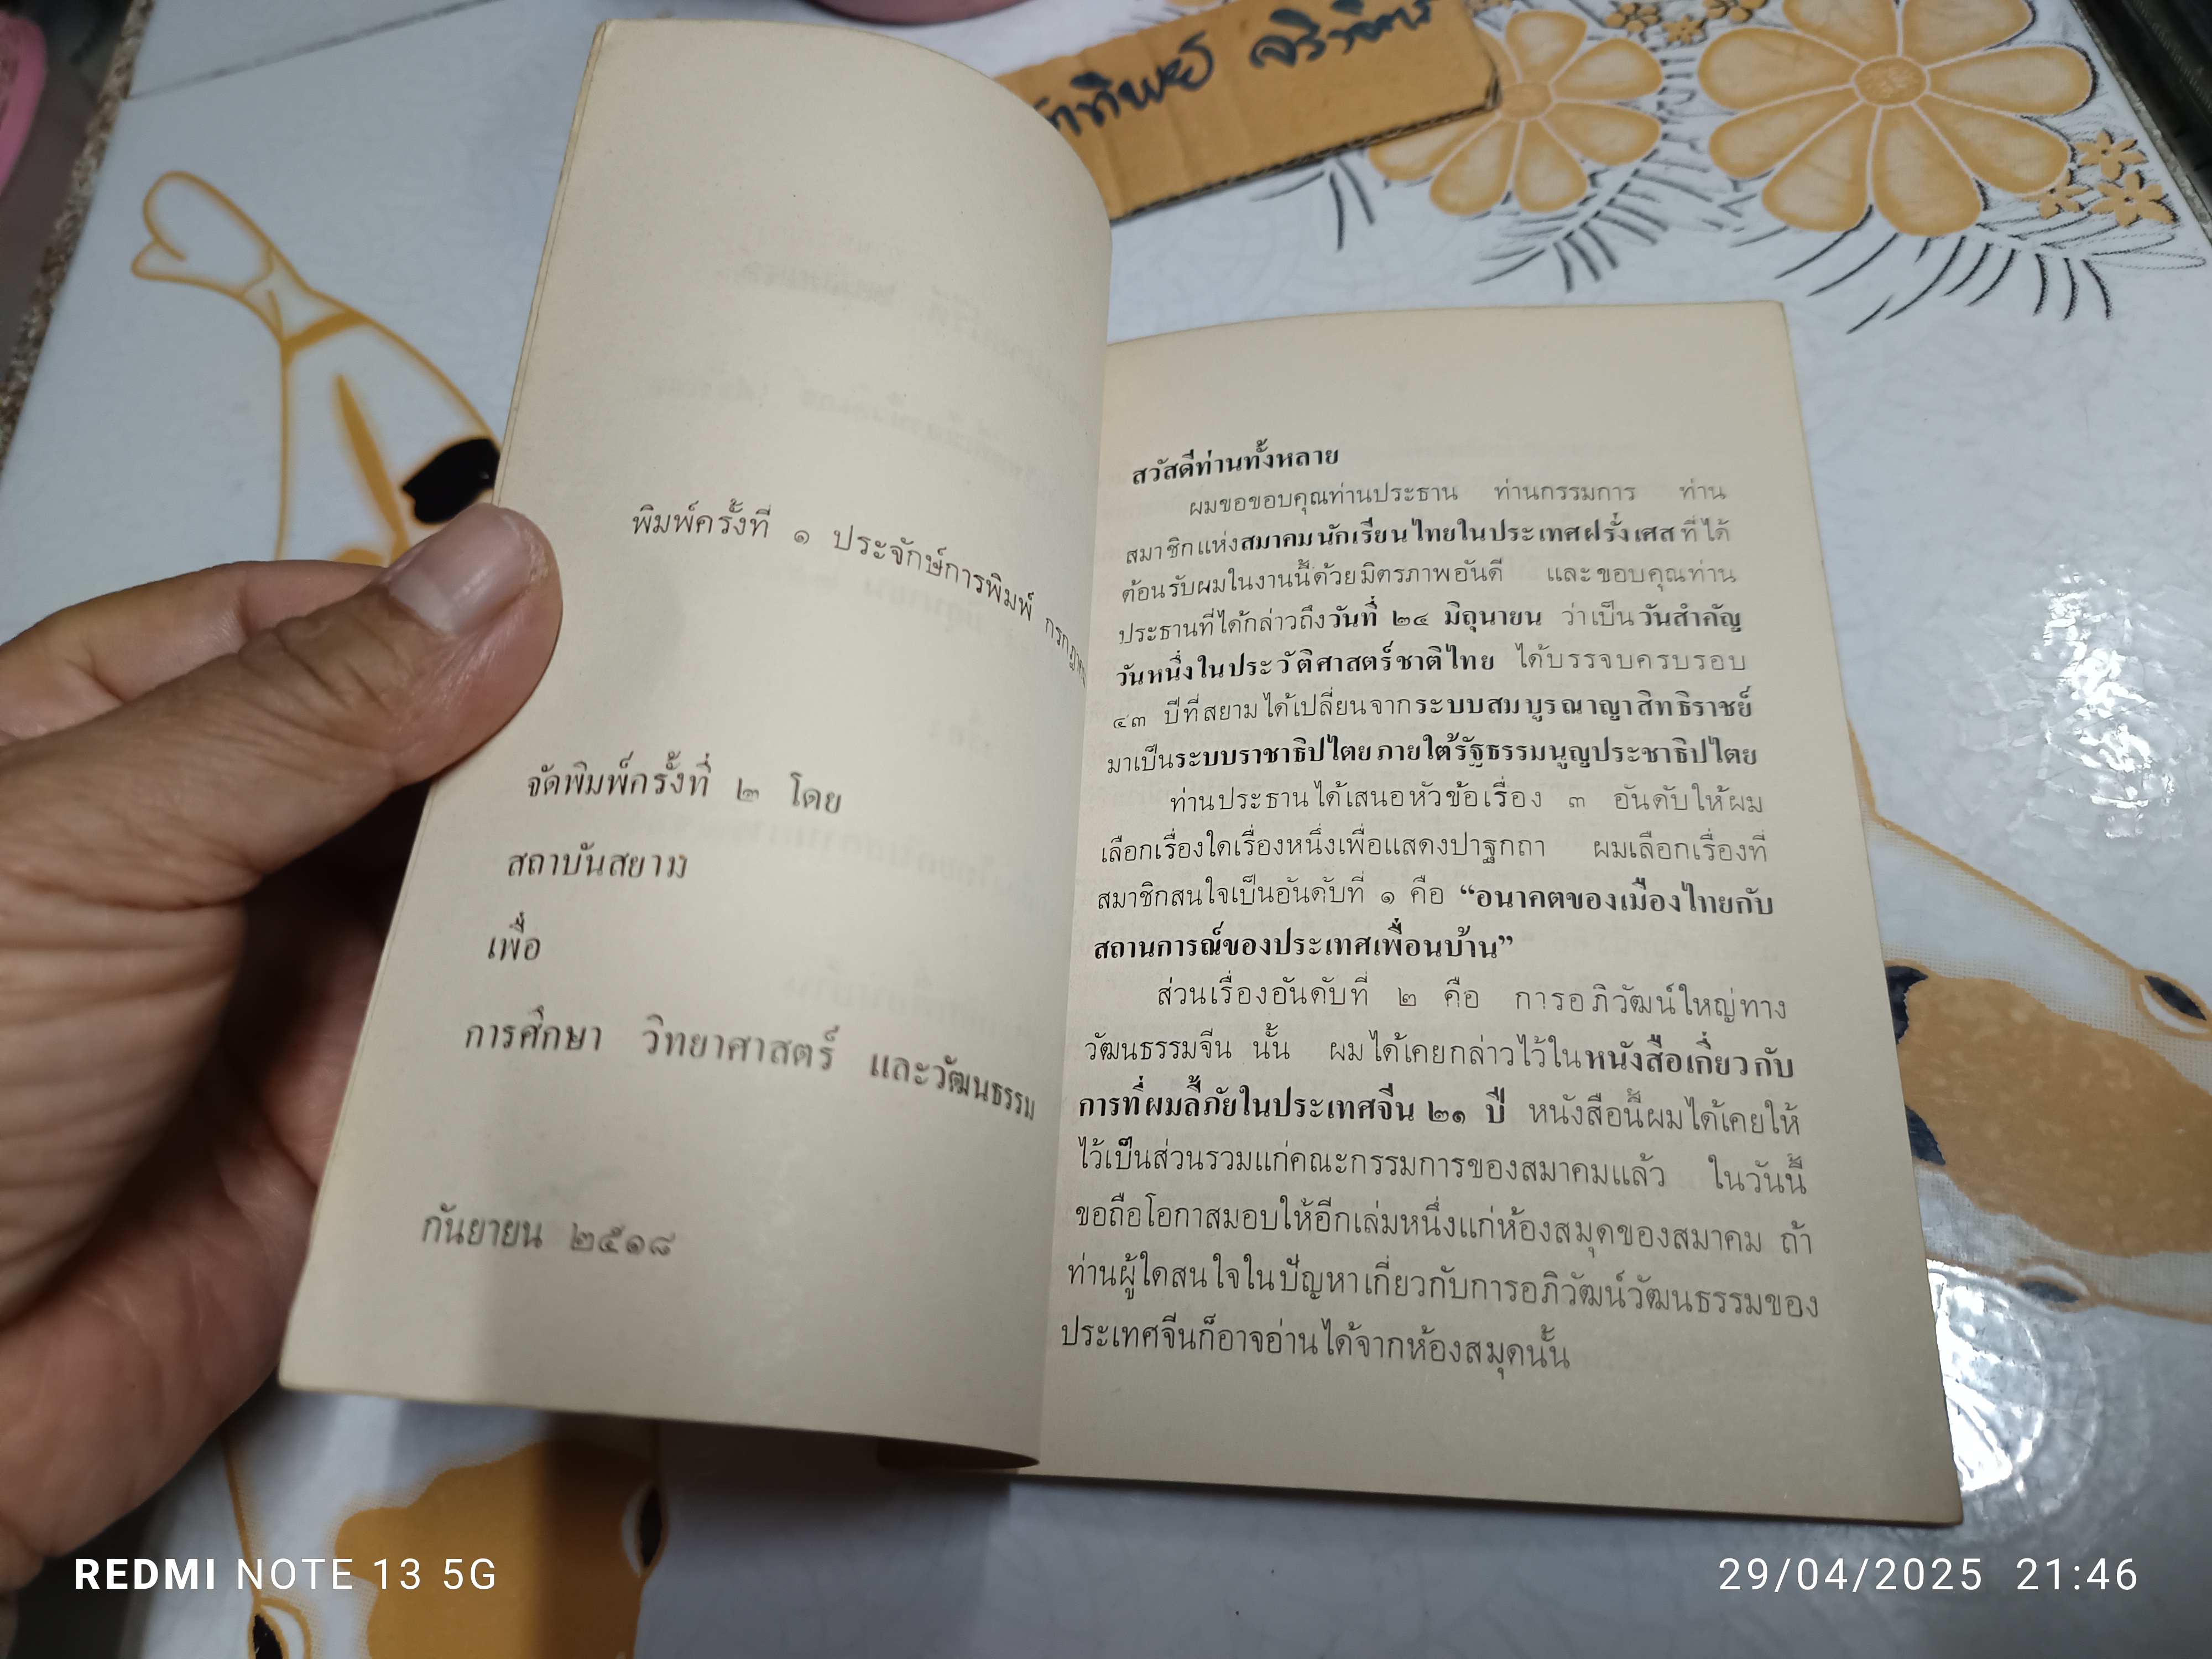 จริวิตร
พิมพ์ครั้งที่ ๑ ประจักษ์การพิมพ์
จัดพิมพ์ครั้งที่ ๒ โดย
สถาบันสยาม
เพื่อ
การศึกษา วิทยาศาสตร์ และวัฒนธรรม
กันยายน ๒๕๑๘
สวัสดีท่านทั้งหลาย
ผมขอขอบคุณท่านประธาน ท่านกรรมการ ท่าน
สมาชิกแห่งสมาคมนักเรียนไทยในประเทศฝรั่งเศสที่ได้
ต้อนรับผมในงานนี้ด้วยมิตรภาพอันดี และขอบคุณท่าน
ประธานที่ได้กล่าวถึงวันที่ ๒๔ มิถุนายน ว่าเป็นวันสำคัญ
วันหนึ่งในประวัติศาสตร์ชาติไทย ได้บรรจบครบรอบ
๔๓ ปีที่สยามได้เปลี่ยนจากระบบสมบูรณาญาสิทธิราชย์
มาเป็นระบบราชาธิปไตยภายใต้รัฐธรรมนูญประชาธิปไตย
ท่านประธานได้เสนอหัวข้อเรื่อง ๓ อันดับให้ผม
เลือกเรื่องใดเรื่องหนึ่งเพื่อแสดงปาฐกถา ผมเลือกเรื่องที่
สมาชิกสนใจเป็นอันดับที่ ๑ คือ “อนาคตของเมืองไทยกับ
สถานการณ์ของประเทศเพื่อนบ้าน”
ส่วนเรื่องอันดับที่ ๒ คือ การอภิวัฒน์ใหญ่ทาง
วัฒนธรรมจีน นั้น ผมได้เคยกล่าวไว้ในหนังสือเกี่ยวกับ
การที่ผมลี้ภัยในประเทศจีน ๒๑ ปี หนังสือนี้ผมได้เคยให้
ไว้เป็นส่วนรวมแก่คณะกรรมการของสมาคมแล้ว ในวันนี้
ขอถือโอกาสมอบให้อีกเล่มหนึ่งแก่ห้องสมุดของสมาคม ถ้า
ท่านผู้ใดสนใจในปัญหาเกี่ยวกับการอภิวัฒน์วัฒนธรรมของ
ประเทศจีนก็อาจอ่านได้จากห้องสมุดนั้น
REDMI NOTE 13 5G
29/04/2025 21:46